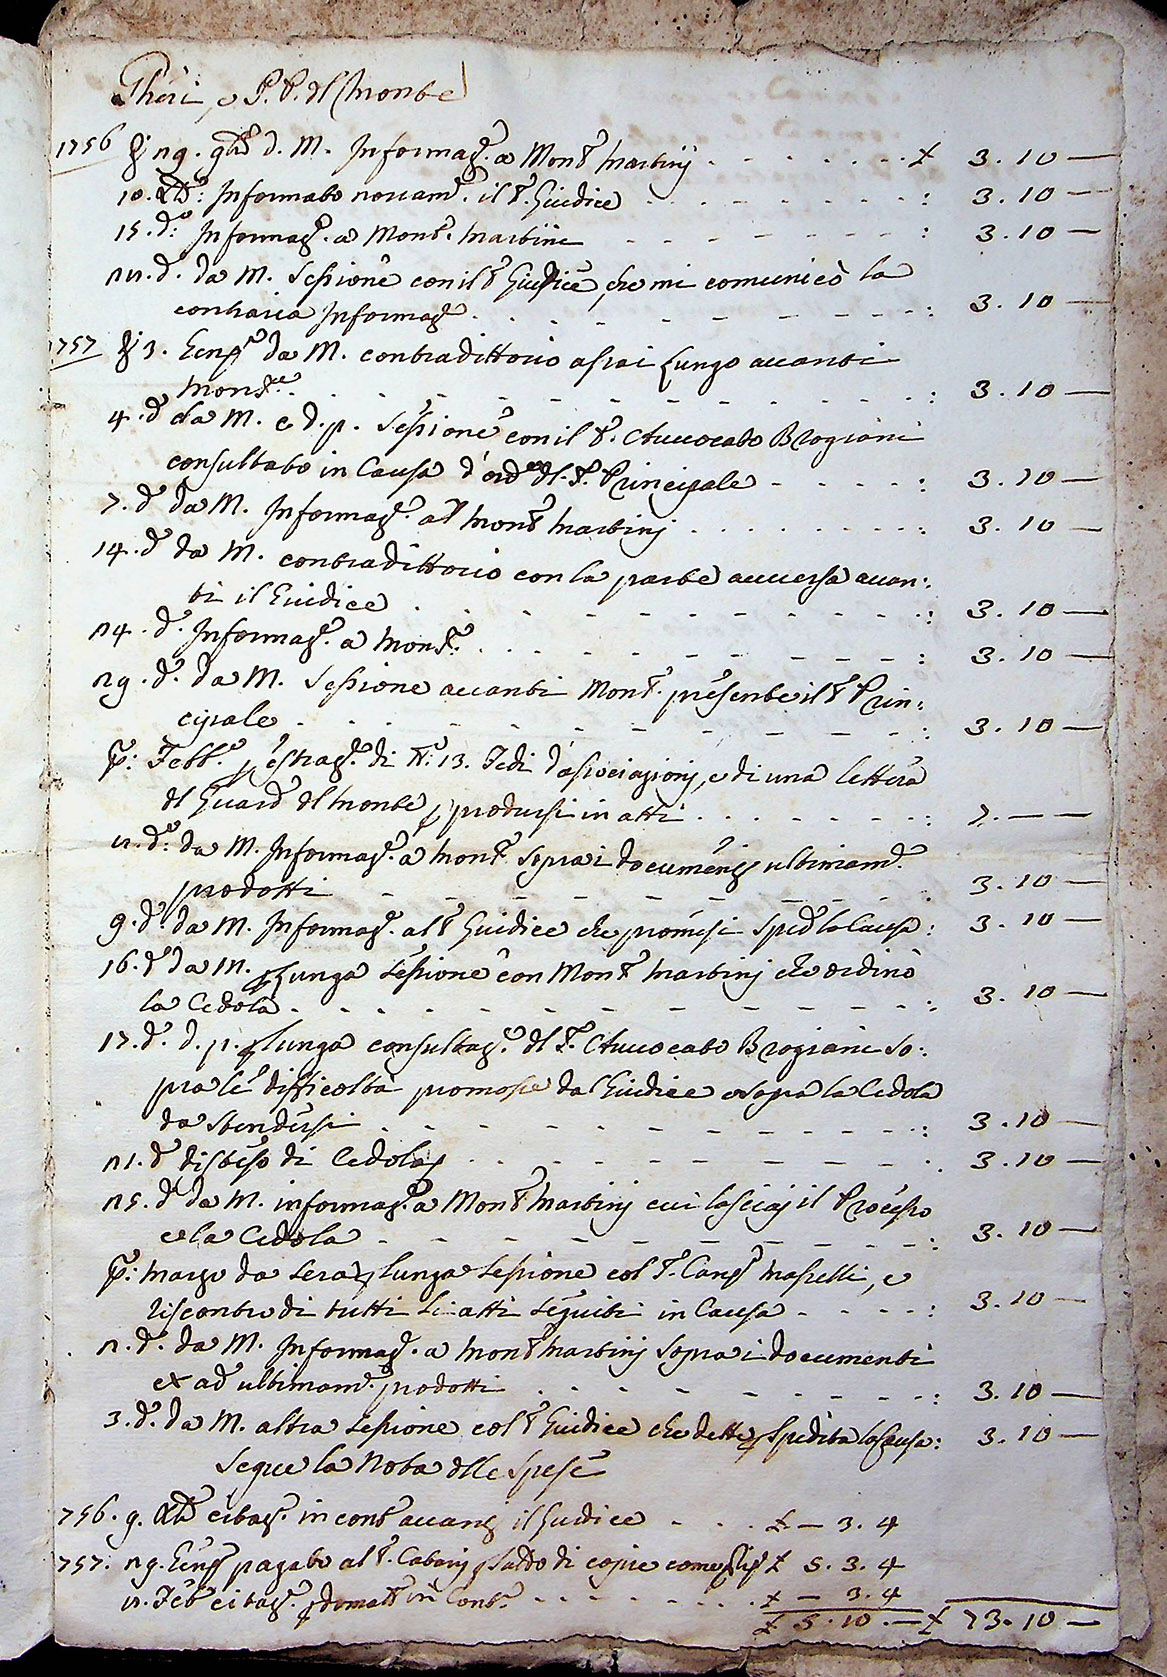 e P. P. del Monte
1756 29. d. M. Informaz.e a Mons.r Martinij - - - £ 3.10 —
10. Xbre: Informato novam.e il S.r Giudice - - - : 3.10 —
15. d.o: Informaz.e a Mons.r Martini - - - : 3.10 —
22. d.o da M. Sessione con il S.r Giudice, che mi comunicò la
contraria Informaz.e - - - : 3.10 —
1757 3. da M. contradittorio assai lungo avanti
Mons.re - - - : 3.10 —
4. d.o da M. e d. p. Sessione con il S.r Avvocato Brogiani
consultato in Causa d'ord.e del S.r Principale - - - : 3.10 —
7. d.o da M. Informaz.e a Mons.r Martinij - - - : 3.10 —
14. d.o da M. contradittorio con la parte avversa avan:
ti il Giudice - - - : 3.10 —
24. d.o Informaz.e a Mons.r - - - : 3.10 —
29. d.o da M. Sessione avanti Mons.r presente il S.r Prin:
cipale - - - : 3.10 —
P.o: Febb.o p estraz.e di N.o 13. Fedi d'associazionj, e di una lettera
del Guard.o del Monte p prodursi in atti - - - : 7. — —
2. d.o: da M. Informaz.e a Mons.r sopra i documenti ultimam.e
prodotti - - - : 3.10 —
9. d.o da M. Informaz.e al S.r Giudice che promise sped.e la Causa : 3.10 —
16. d.o da M. p lunga Sessione con Mons.r Martinij che ordinò
la Cedola - - - : 3.10 —
17. d.o d. p. p lunga consultaz.e del S.r Avvocato Brogiani so:
pra le difficoltà promosse dal Giudice e sopra la Cedola
da stendersi - - - : 3.10 —
21. d.o disteso di Cedola - - - : 3.10 —
25. d.o da M. informaz.e a Mons.r Martinij cui lasciaj il Processo
e la Cedola - - - : 3.10 —
P.o: Marzo da sera p lunga sessione col S.r Canc.e Masselli, e
riscontro di tutti li atti seguiti in Causa - - - : 3.10 —
2. d.o da M. Informaz.e a Mons.r Martinij sopra i documenti
ex ad.o ultimam.e prodotti - - - : 3.10 —
3. d.o da M. altra sessione col S.r Giudice che dette p spedita la Causa : 3.10 —
Segue la Nota delle Spese
756. 9. Xbre citaz.e in cont.o avanti il Giudice - - - £ — 3.4
757. 29. pagato al S.r p saldo di copie come £ 5.3.4
2. Feb.o citaz.e in Cont.o - - - £ — 3.4
£ 5.10. — £ 73.10 —